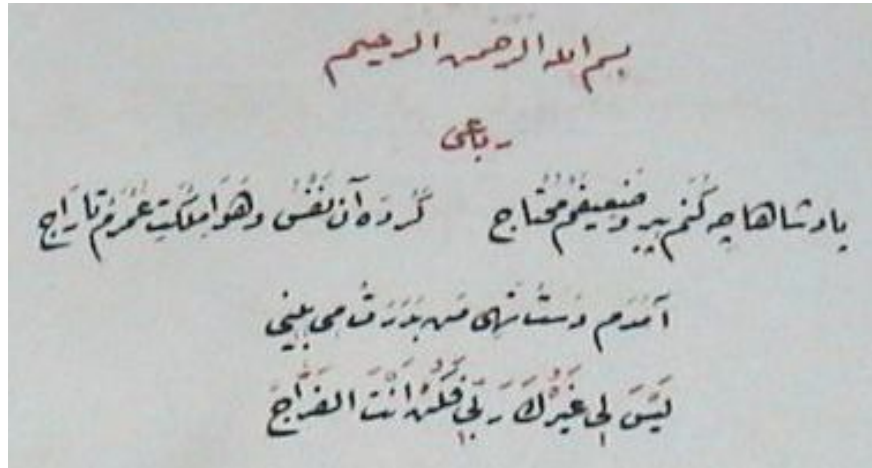 بسم الله الرحمن الرحيم
رباعی
پادشاها چه کُنَم پیر و ضَعیفَم مُحْتاج کَرْدَه آن نَفْسُ و هَوَا مِلْکَتِ عُمْرَم تارَاج
آمَدَم دَسْت تهی مَن بَدَرَتْ می بینی
لَيْسَ لِي غَيْرُكَ رَبِّي فَكُنْ أَنْتَ الفَرَّاجَ